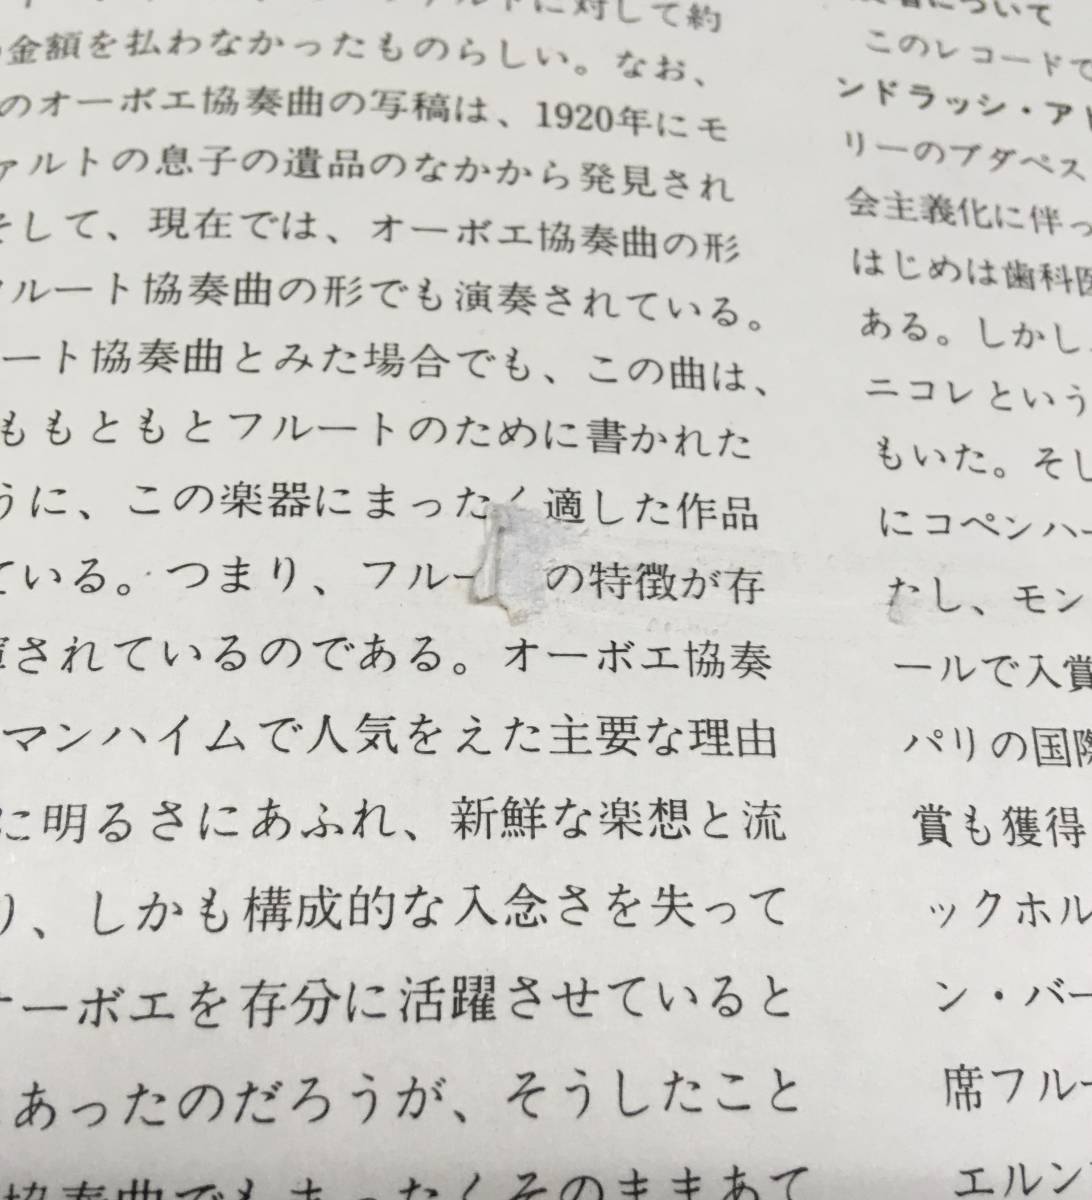 に対して約
金額を払わなかったものらしい。なお、
のオーボエ協奏曲の写稿は、1920年にモ
ァルトの息子の遺品のなかから発見され
そして、現在では、オーボエ協奏曲の形
フルート協奏曲の形でも演奏されている。
ート協奏曲とみた場合でも、この曲は、
ももともとフルートのために書かれた
うに、この楽器にまったく適した作品
ている。つまり、フルー の特徴が存
されているのである。オーボエ協奏
マンハイムで人気をえた主要な理由
に明るさにあふれ、新鮮な楽想と流
り、しかも構成的な入念さを失って
オーボエを存分に活躍させていると
あったのだろうが、そうしたこと
協奏曲でもまったくそのままあて
について
このレコードで
ンドラッシ・アド
リーのブダペス
会主義化に伴っ
はじめは歯科医
ある。しかし
ニコレという
もいた。そし
にコペンハー
たし、モン
ールで入賞
パリの国際
賞も獲得
ックホル
ン・バー
席フルー
エルン